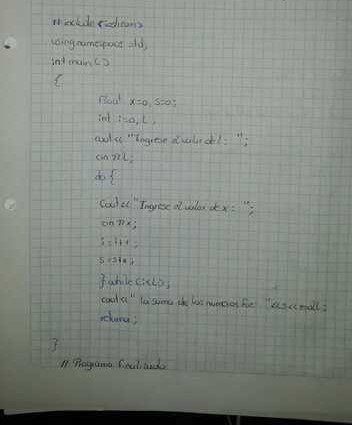 #include <iostream>
using namespace std;
int main()
{
float x=0, s=0;
int i=0, L;
cout << "Ingrese el valor de l: ";
cin >> L;
do {
cout << "Ingrese el valor de x = ";
cin >> x;
i=i+1;
s=s+x;
} while (i<L);
cout << " la suma de los numeros fue: " << s << endl;
return 0;
}
// Programa finalizado